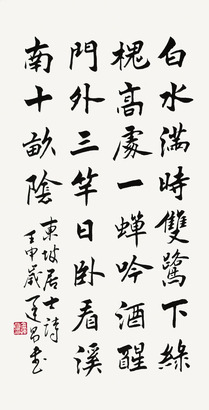 白水滿時雙鷺下綠
槐高處一蟬吟酒醒
門外三竿日臥看溪
南十畝陰
東坡居士詩
壬申歲